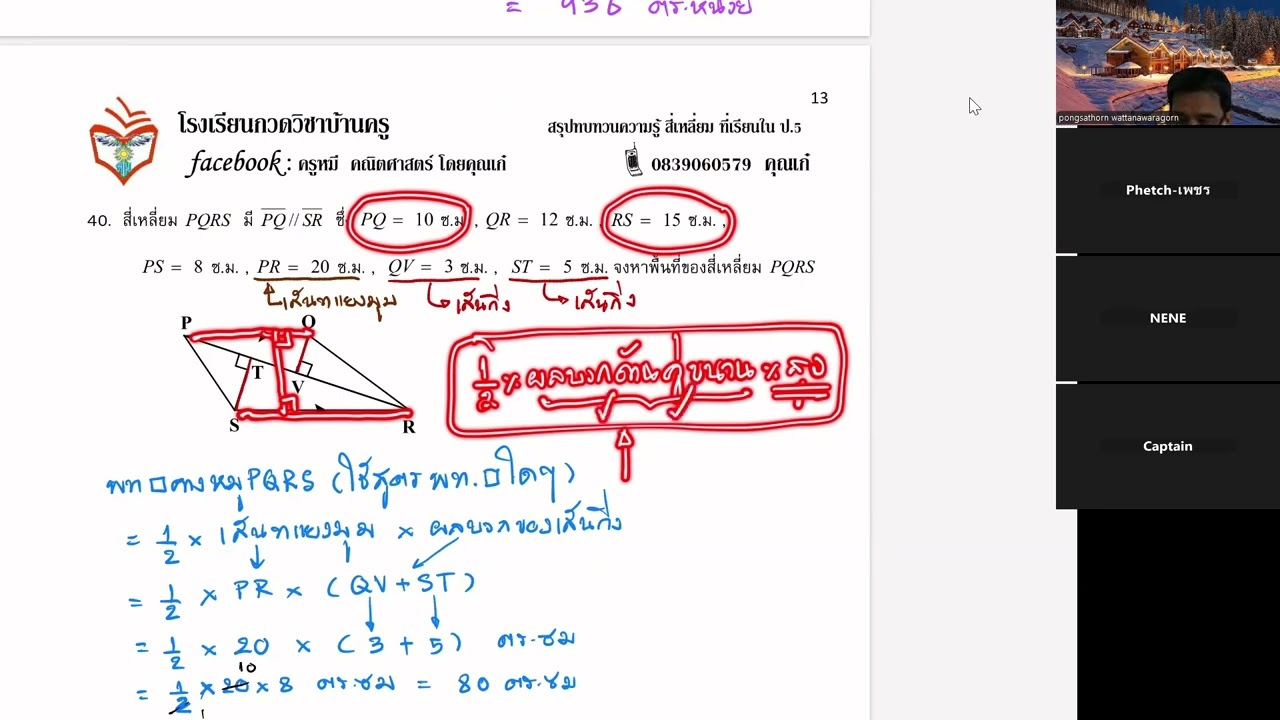 = 936 ตร.หน่วย
13
โรงเรียนกวดวิชาบ้านครู
สรุปทบทวนความรู้ สี่เหลี่ยม ที่เรียนใน ป.5
facebook : ครูหมี คณิตศาสตร์ โดยคุณเก๋
0839060579 คุณเก๋
40. สี่เหลี่ยม PQRS มี PQ // SR ซึ่ PQ = 10 ซ.ม , QR = 12 ซ.ม. RS = 15 ซ.ม. ,
PS = 8 ซ.ม. , PR = 20 ซ.ม. , QV = 3 ซ.ม. , ST = 5 ซ.ม. จงหาพื้นที่ของสี่เหลี่ยม PQRS
เส้นทแยงมุม เส้นกิ่ง เส้นกิ่ง
P Q
T V
S R
1/2 × ผลบวกด้านคู่ขนาน × สูง
พท □คางหมู PQRS (ใช้สูตร พท. □ใดๆ)
= 1/2 × เส้นทแยงมุม × ผลบวกของเส้นกิ่ง
= 1/2 × PR × (QV + ST)
= 1/2 × 20 × (3 + 5) ตร.ซม
10
= 1/2 × 20 × 8 ตร.ซม = 80 ตร.ซม
1
pongsathorn wattanawaragorn
Phetch-เพชร
NENE
Captain